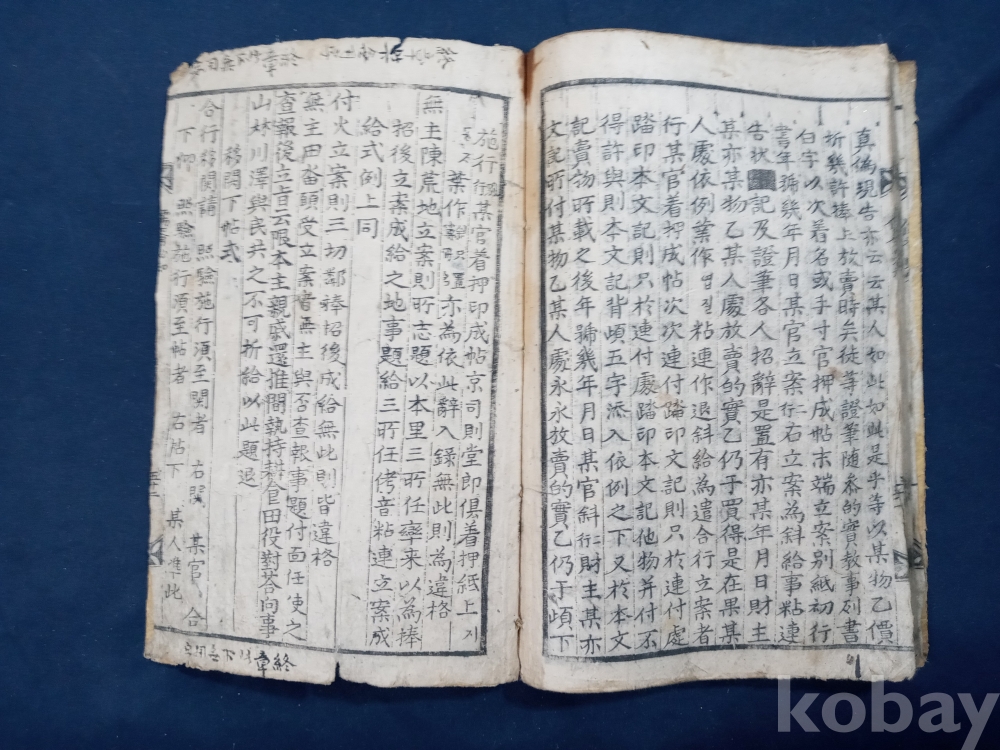 真偽現告亦云云某人如此如此是乎等以某物乙價
折幾許捧上放賣時矣徒等證筆随叅的實教事列書
白字以次着名或手寸官押成帖末端立案别紙初行
書年號幾年月日某官立案右立案為斜給事粘連
告狀記及證筆各人招辭是置有亦某年月日財主
某亦某物乙某人處放賣的實乙仍于買得是在果某
人處依例葉作粘連作退斜給為遣合行立案者
行某官着押成帖次次連付踏印文記則只於連付處
踏印本文記則只於連付處踏印本文記他物并付不
得許與則本文記背頉五字添入依例之下又於本文
記賣物所載之後年號幾年月日某官斜財主某亦
文記所付某物乙某人處永永放賣的實乙仍于頉下
施行某官着押印成帖京司則堂郎俱着押紙上
葉作亦為依此辭入錄無此則為違格
無主陳荒地立案則所志題以本里三所任率来以為捧
招後立案成給之地事題給三所任侤音粘連立案成
給式例上同
付火立案則三切鄰捧招後成給無此則皆違格
無主田畓頉受立案者無主與否查報事題付面任使之
查報後立旨云限本主親戚還推間執持耕食田役對答向事
山林川澤與民共之不可折給以此題退
移関下帖式
合行移関請 照驗施行須至関者 右関 某官 合
下仰 照驗施行須至帖者 右帖下 某人準此
終章
kobay